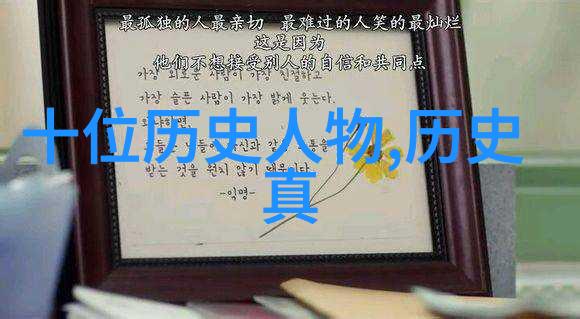 最孤独的人最亲切 最难过的人笑的最灿烂
这是因为
他们不想接受别人的自信和共同点
가장 외로운 사람이 가장 친절하고
가장 슬픈 사람이 가장 밝게 웃는다.
왜냐하면,
받는 것을 원치 않기 때문이다.
-익명-
十位历史人物,历史
真